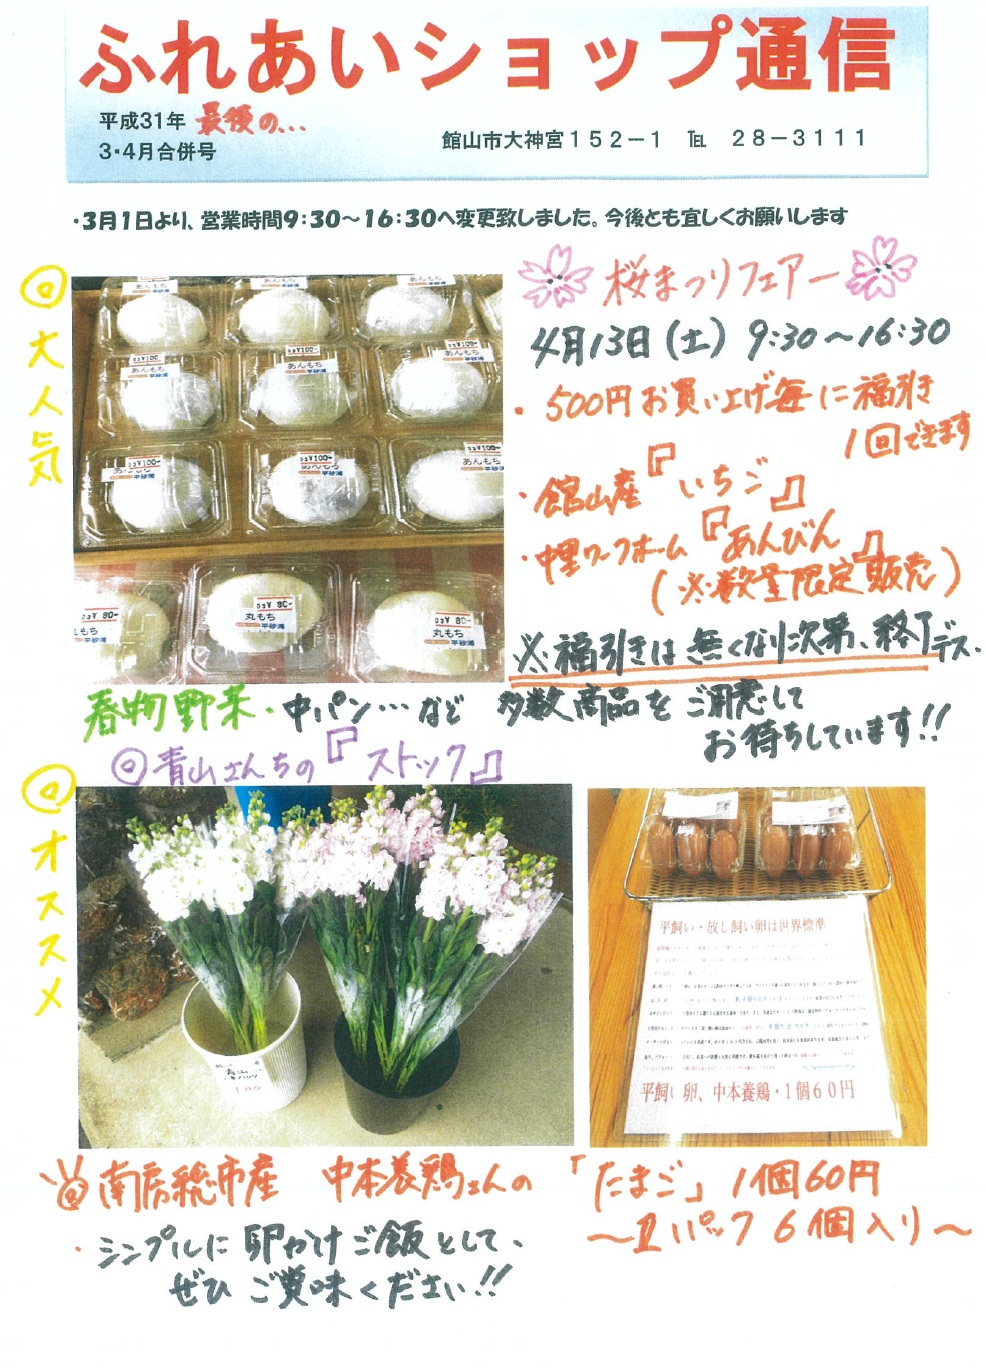 ふれあいショップ通信
平成31年 最後の...
3・4月合併号
館山市大神宮152-1 ℡ 28-3111
・3月1日より、営業時間9:30~16:30へ変更致しました。今後とも宜しくお願いします
◎大人気
桜まつりフェアー
4月13日(土) 9:30~16:30
・500円お買い上げ毎に福引き
1回できます
・館山産『いちご』
・中里ワークホーム『あんびん』
(※数量限定販売)
※福引きは無くなり次第、終了デス.
春物野菜・中パン…など 多数商品をご用意して
お待ちしています!!
あんもち
¥100-
平砂浦
丸もち
¥80-
平砂浦
◎青山さんちの『ストック』
◎オススメ
平飼い・放し飼い卵は世界標準
平飼い卵、中本養鶏・1個60円
南房総市産 中本養鶏さんの 「たまご」1個60円
~1パック 6個入り~
・シンプルに卵かけご飯として、
ぜひご賞味ください!!